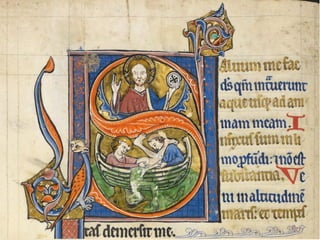 Saluum me fac
ds qm intrauerunt
aque usq; ad ani
mam meam. I
nfixus sum in li
mo pfūdi: ⁊ nō est
substantia. Ve
ni in altitudinē
maris et tempes
tas demersit me.